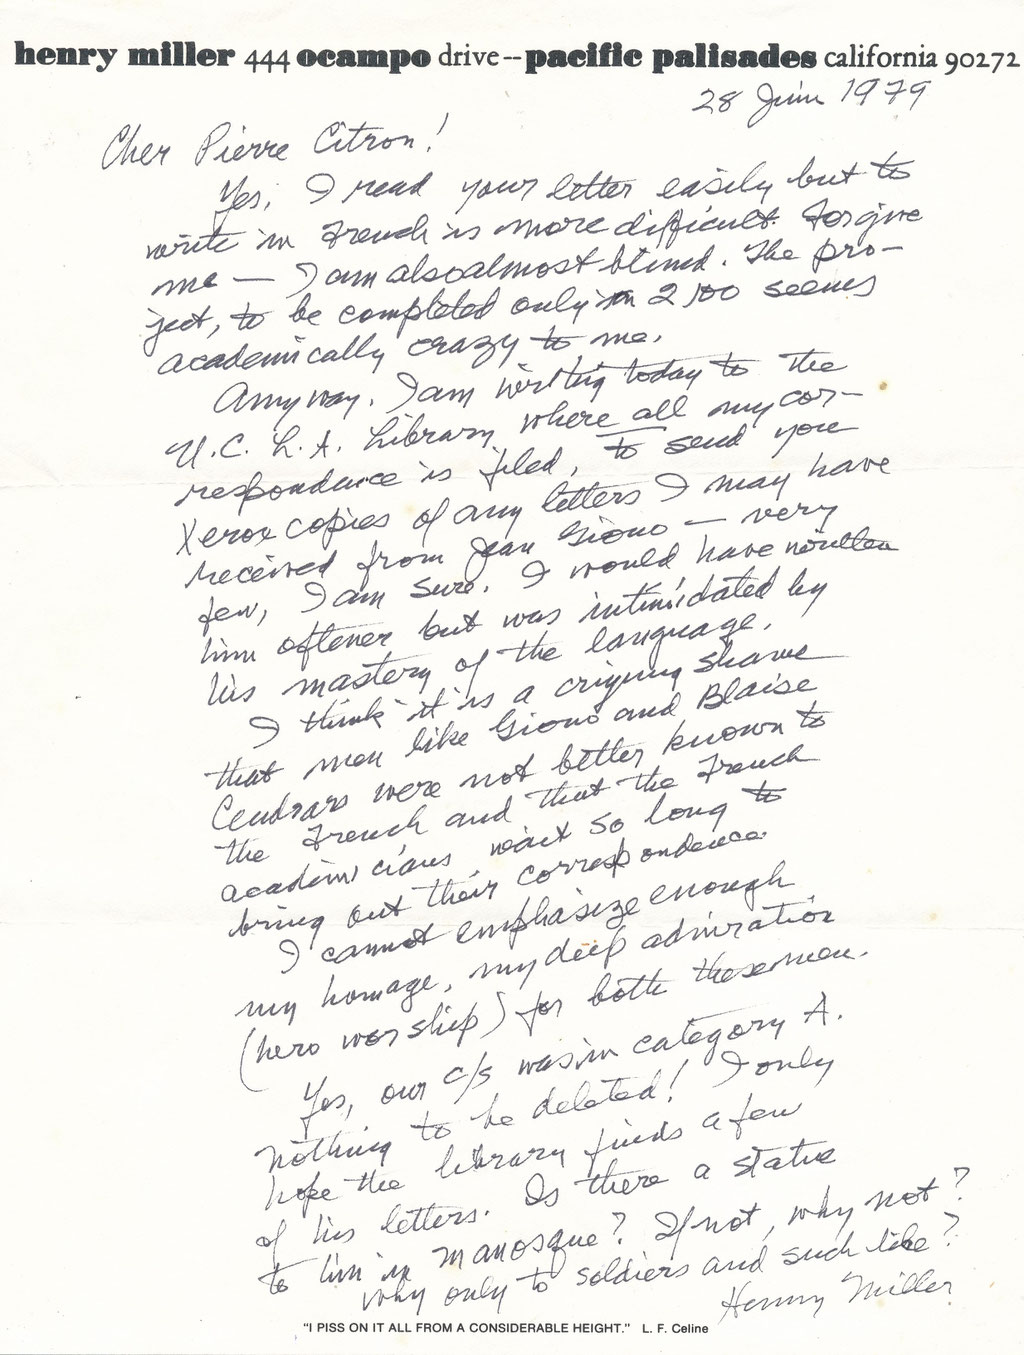 henry miller 444 ocampo drive -- pacific palisades california 90272
28 Juin 1979
Cher Pierre Citron!
Yes, I read your letter easily but to
write in French is more difficult. Forgive
me — I am also almost blind. The pro-
ject, to be completed only in 2100 seems
academically crazy to me.
Anyway, I am writing today to the
U.C.L.A. Library, where all my cor-
respondence is filed, to send you
Xerox copies of any letters I may have
received from Jean Giono — very
few, I am sure. I would have written
him oftener but was intimidated by
his mastery of the language.
I think it is a crying shame
that men like Giono and Blaise
Cendrars were not better known to
the French and that the French
academicians wait so long to
bring out their correspondence.
I cannot emphasize enough
my homage, my deep admiration
(hero worship) for both these men.
Yes, our c/s was in category A.
Nothing to be deleted! I only
hope the library finds a few
of his letters. Is there a statue
to him in Manosque? If not, why not?
Why only to soldiers and such like?
Henry Miller
"I PISS ON IT ALL FROM A CONSIDERABLE HEIGHT." L. F. Celine